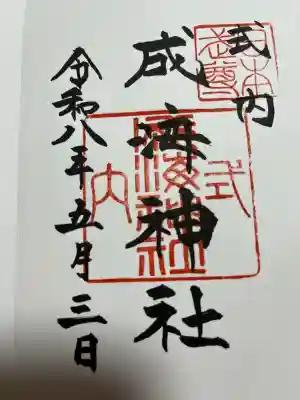 式内
成海神社
令和八年五月三日
日本武尊
式内
成海神社